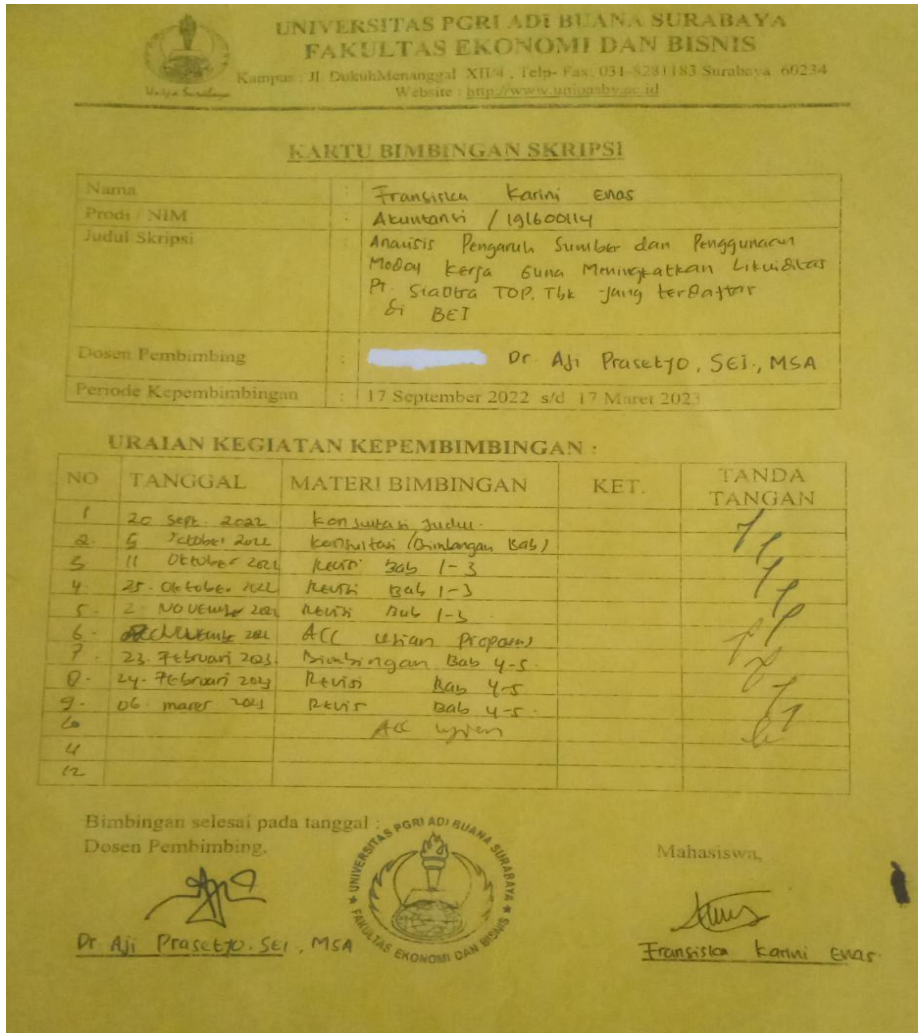 UNIVERSITAS PGRI ADI BUANA SURABAYA
FAKULTAS EKONOMI DAN BISNIS
Kampus : Jl. DukuhMenanggal XII/4 , Telp- Fax: 031-8281183 Surabaya 60234
Website : http://www.unipasby.ac.id
KARTU BIMBINGAN SKRIPSI
Nama : Fransiska Karini Enas
Prodi / NIM : Akuntansi / 191600114
Judul Skripsi : Analisis Pengaruh Sumber dan Penggunaan
Modal Kerja Guna Meningkatkan Likuiditas
Pt. TOP, Tbk yang terdaftar
di BEI
Dosen Pembimbing : Dr Aji Prasetyo, SEI., MSA
Periode Kepembimbingan : 17 September 2022 s/d 17 Maret 2023
URAIAN KEGIATAN KEPEMBIMBINGAN :
NO TANGGAL MATERI BIMBINGAN KET. TANDA TANGAN
1 20 Sept. 2022 Konsultasi Judul.
2. 5 2022 Konsultasi (Bimbangan Bab)
3 11 Oktober 2022 Revisi Bab 1-3
4. 25. Oktober 2022 Revisi Bab 1-3
5. 2. November 2022 Revisi Bab 1-3
6. ACC Ujian Proposal
7. 23. Februari 2023. Bimbingan Bab 4-5.
8. 24. Februari 2023 Revisi Bab 4-5
9. 06. maret 2023 Revisi Bab 4-5.
10 Acc Ujian
11
12
Bimbingan selesai pada tanggal :
Dosen Pembimbing, Mahasiswa,
UNIVERSITAS PGRI ADI BUANA SURABAYA
FAKULTAS EKONOMI DAN BISNIS
Dr. Aji Prasetyo. SEI , MSA Fransiska Karini Enas.